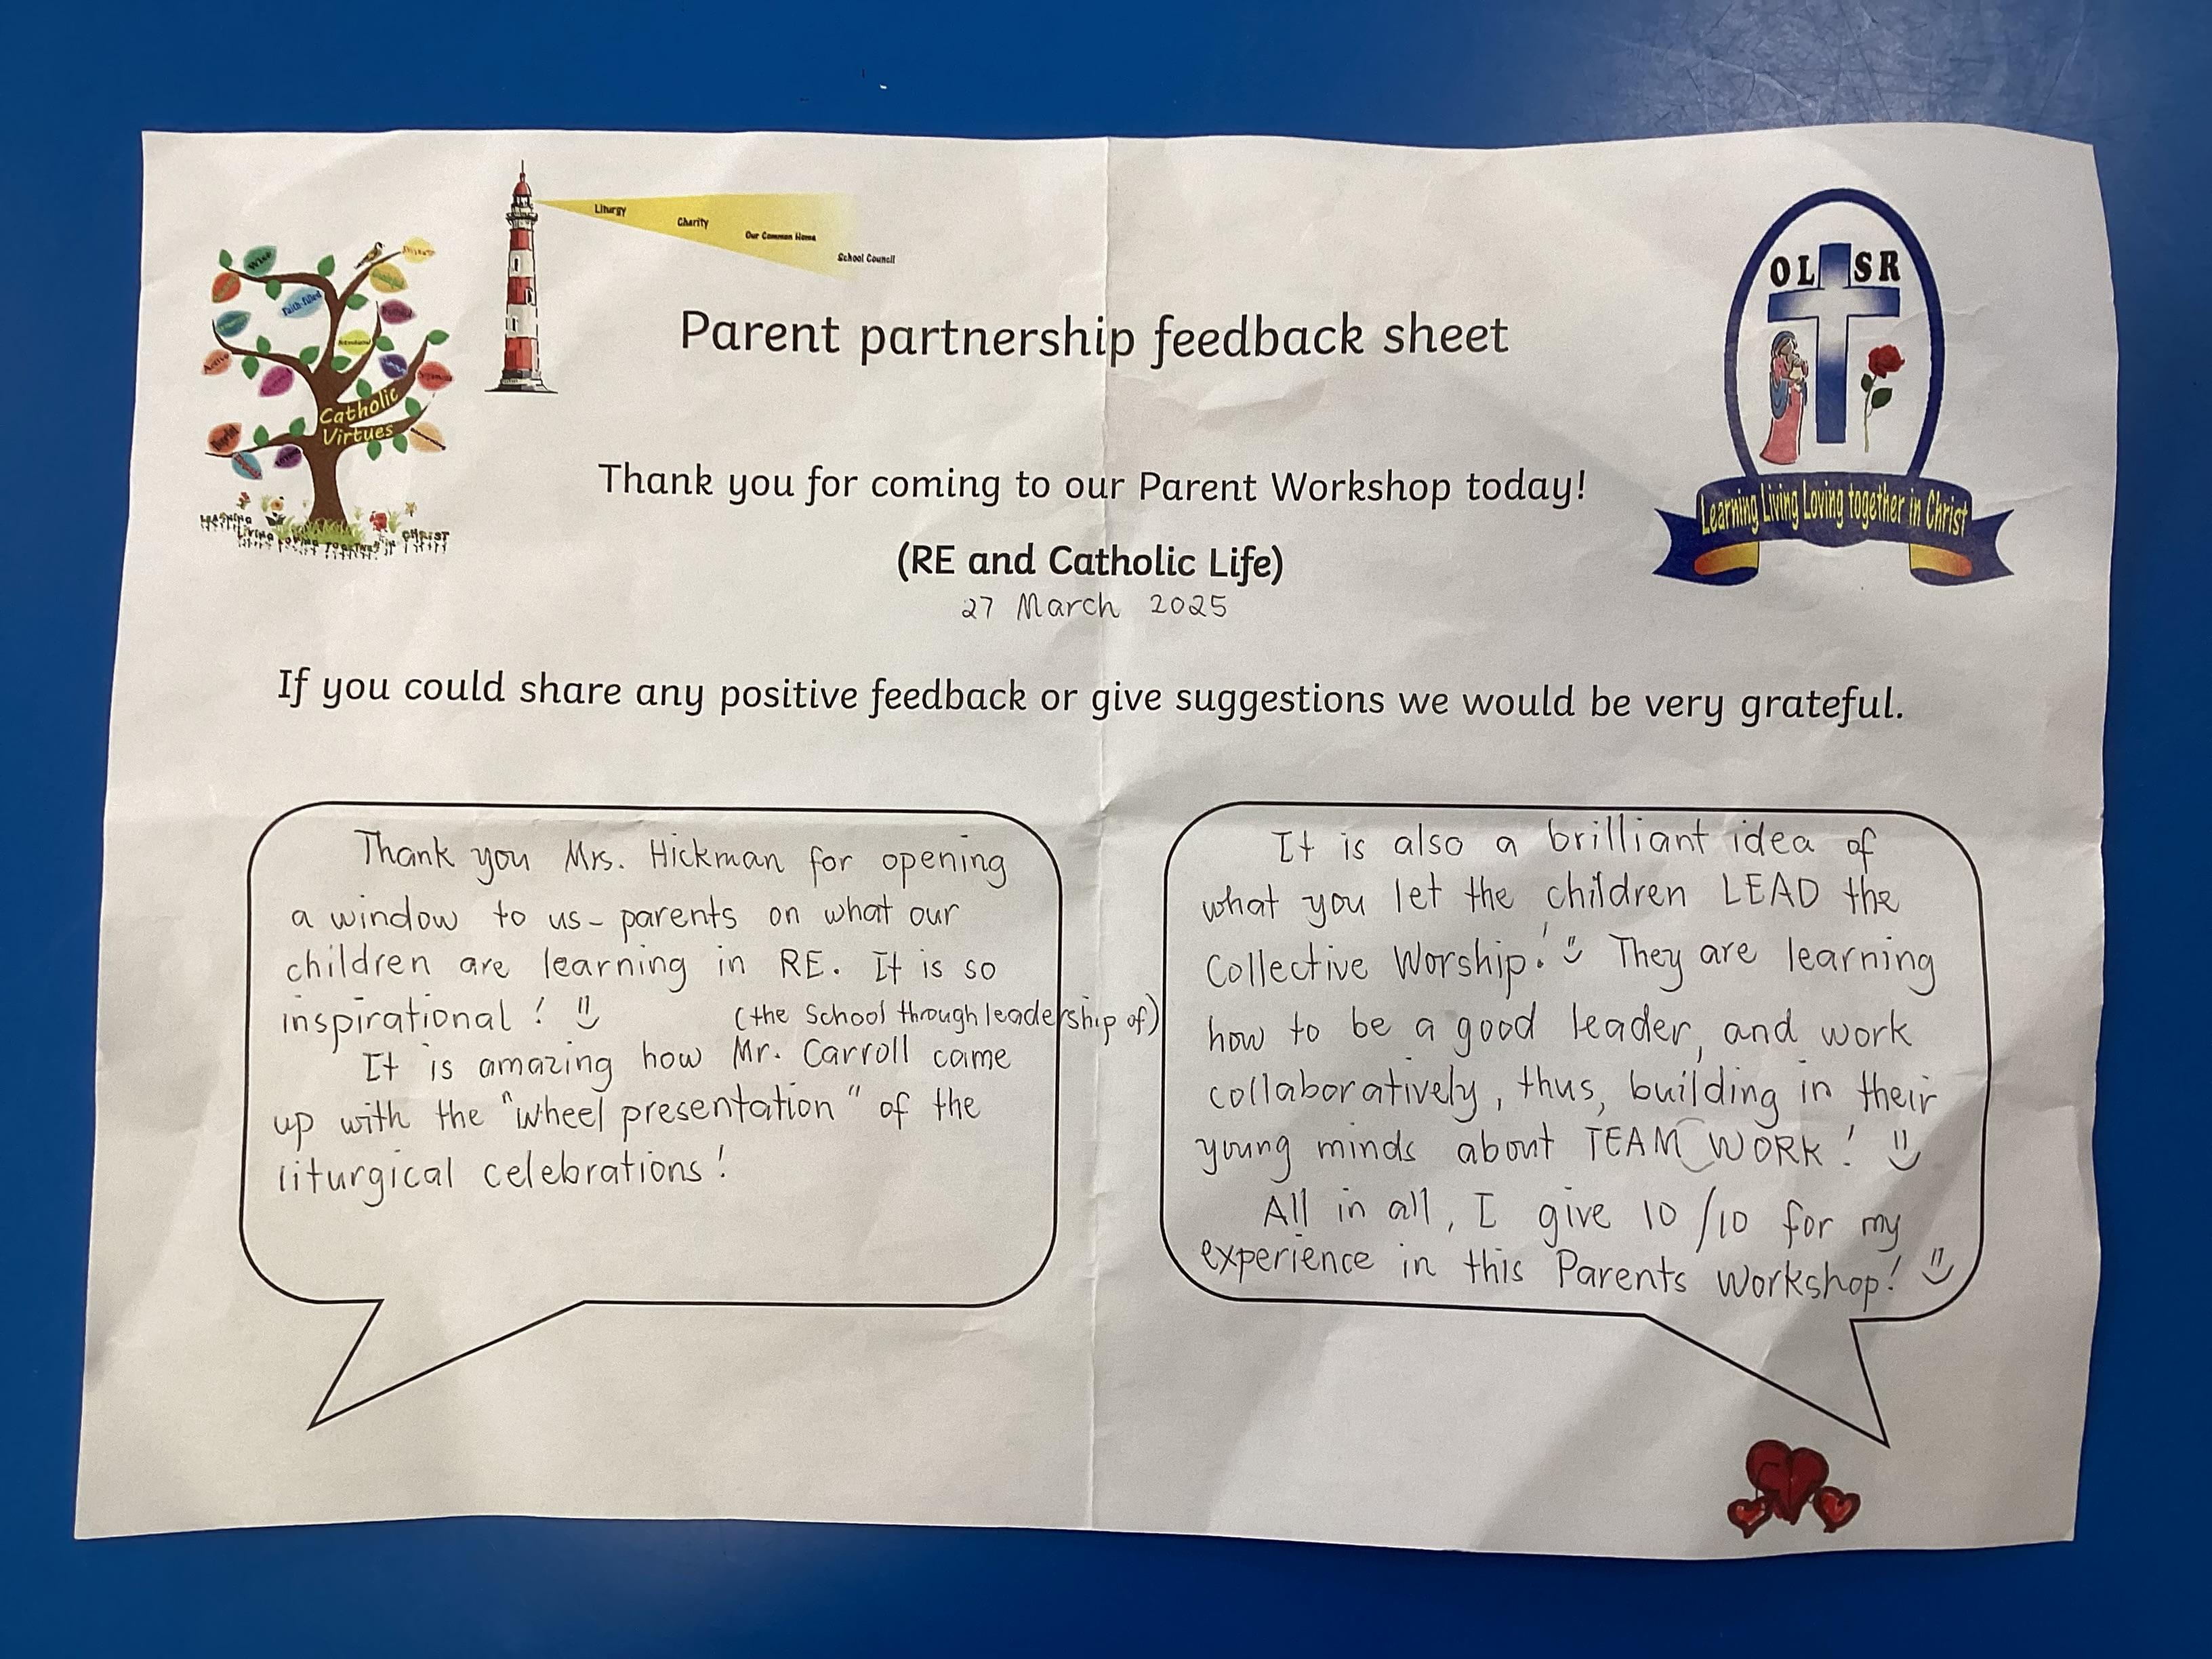 Liturgy
Charity
Our Common Home
School Council
OLSR
Wise
Faith-filled
Active
Catholic
Virtues
LEARNING
LIVING LOVING TOGETHER IN CHRIST
Learning Living Loving together in Christ
Parent partnership feedback sheet
Thank you for coming to our Parent Workshop today!
(RE and Catholic Life)
27 March 2025
If you could share any positive feedback or give suggestions we would be very grateful.
Thank you Mrs. Hickman for opening
a window to us - parents on what our
children are learning in RE. It is so
inspirational!
(the School through leadership of)
It is amazing how Mr. Carroll came
up with the "wheel presentation" of the
liturgical celebrations!
It is also a brilliant idea of
what you let the children LEAD the
Collective Worship! They are learning
how to be a good leader, and work
collaboratively, thus, building in their
young minds about TEAM WORK!
All in all, I give 10/10 for my
experience in this Parents Workshop!